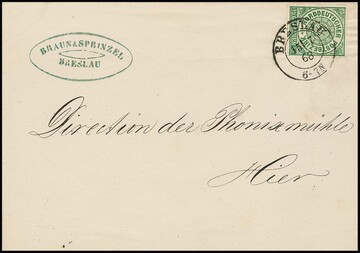 BRAUN & SPRINZEL
BRESLAU
BRESLAU
68
6-7N
NORDDEUTSCHER
POSTBEZIRK
Direction der Phönixmühle
Hier